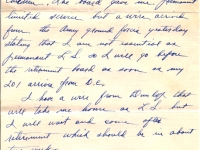 The board gave me permanent
limited service but a wire arrived
from the Army ground forces yesterday
stating that I am not essential as
permanent LS so I will go before
the retirement board as soon as my
201 arrives from D.C.
I have a wire from Dunlop that
will take me home on LS but
I will wait and come after
retirement which should be in about